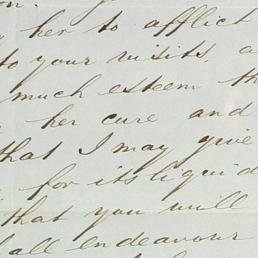 on.
her to afflict
to your visits, a
much esteem th
her cure and
that I may give
for its liquid
that you will
all endeavour